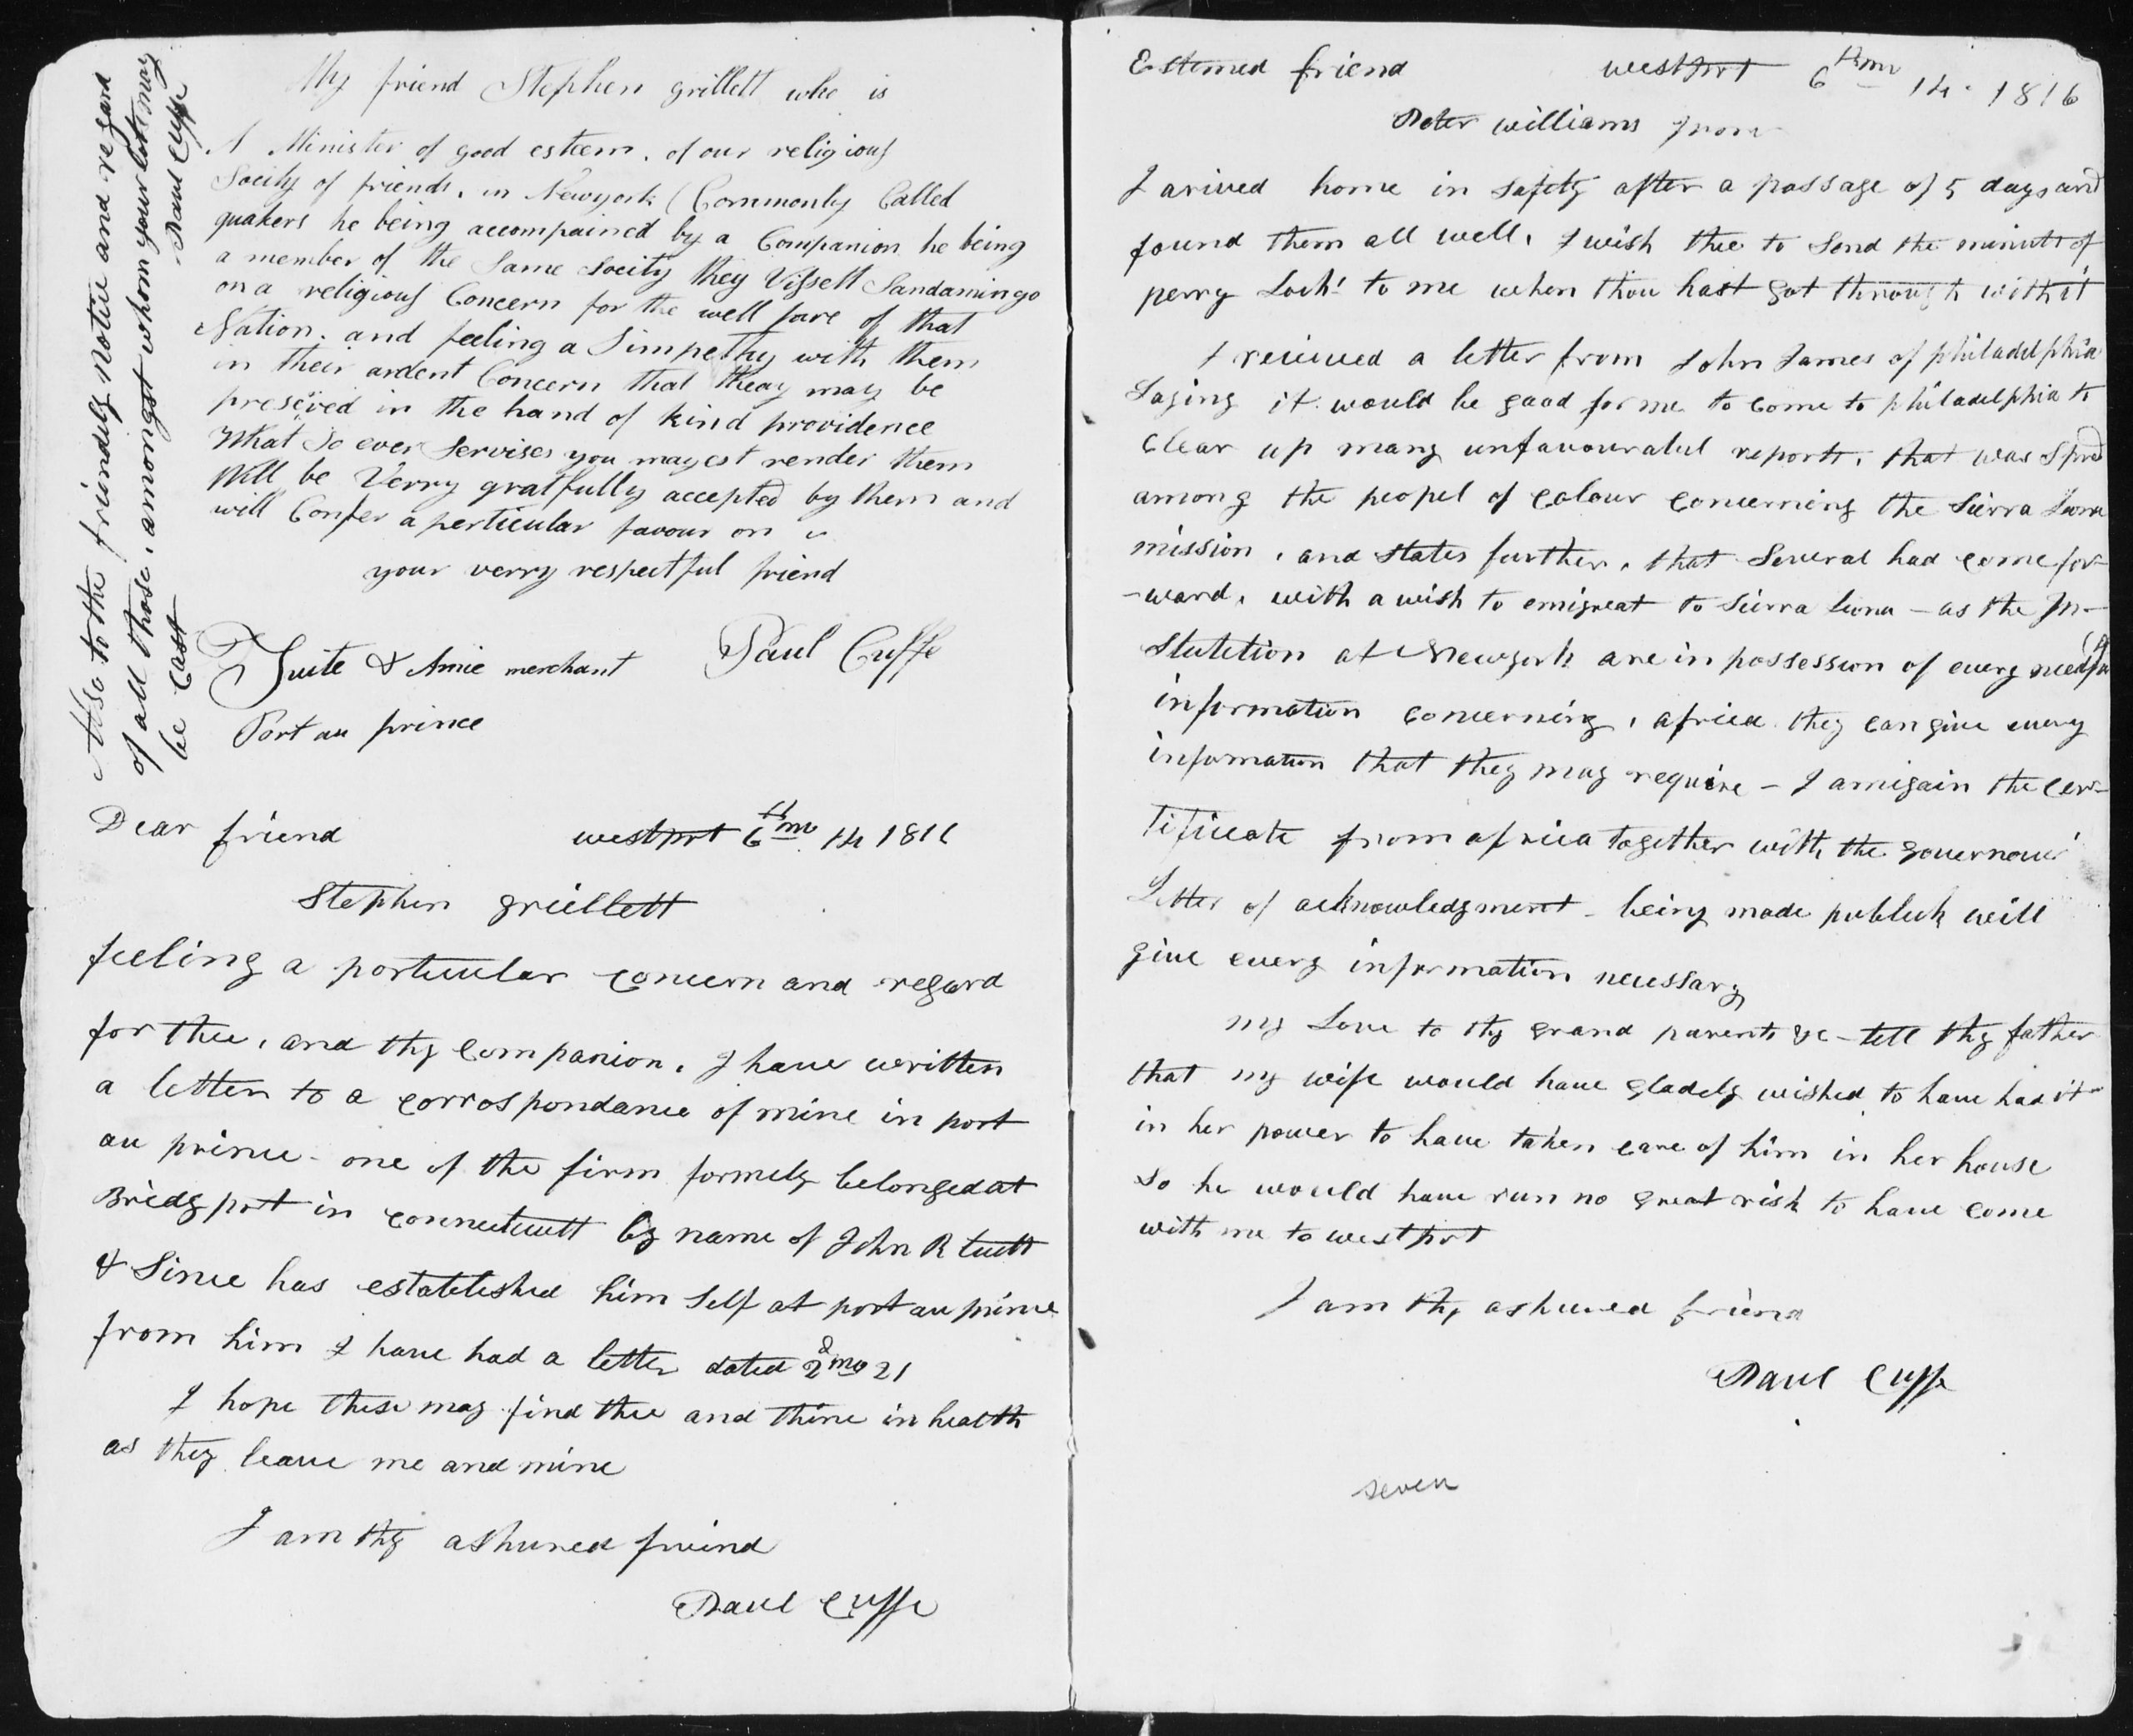 My friend Stephen grillett who is
A Minister of good esteem, of our religious
Socity of friends, in Newyork (Commonly Called
quakers he being accompained by a Companion he being
a member of the Same Socity they Vissett Sandamingo
on a religious Concern for the well fare of that
Nation. and feeling a Simpethy with them
in their ardent Concern that theay may be
preserved in the hand of kind providence
What So ever Servises you mayest render them
Will be Verry gratfully accepted by them and
will Confer a perticular favour on
your verry respectful friend
Paul Cuffe
Tuite & Amie merchant
Port au prince
Also to the friendely notice and regard
of all those, amongst whom your lott may
be cast
Paul Cuffe
Dear friend westport 6th mo 14 1816
Stephen grillett
feeling a porticular concern and regard
for thee, and thy companion, I have written
a letter to a corrospondance of mine in port
au prince - one of the firm formely belonged at
Bridgport in connectucutt by name of John R tuitt
& Since has estableshed him Self at port au prince
from him I have had a letter dated 2d mo 21
I hope these may find thee and thine in health
as they leave me and mine
I am thy ashured friend
Paul Cuffe
Estemed friend westport 6th mo 14. 1816
Peter williams Junr
I arived home in Safety after a passage of 5 days and
found them all well, I wish thee to Send the minuts of
perry Lock's to me when thou hast got through with it
I reieved a letter from John James of philadelphia
Saying it would be good for me to come to philadelphia to
Clear up many unfavouratel reports, that was Spred
among the peopel of colour concerning the Sierra Leona
mission, and states further, that Several had come for-
-ward, with a wish to emigreat to Sierra leona - as the In-
Stutetion at Newyork are in possession of every needful
information concerning, africa they can give every
information that they may require - I amigain the Cer-
tificate from africa together with the governour's
Letter of acknowledgment - being made publick will
give every information necessary
my Love to thy grand parents &c - tell thy father
that my wife would have gladely wished to have had it
in her power to have taken care of him in her house
So he would have run no great risk to have come
with me to westport
I am thy ashured friend
Paul Cuffe
seven